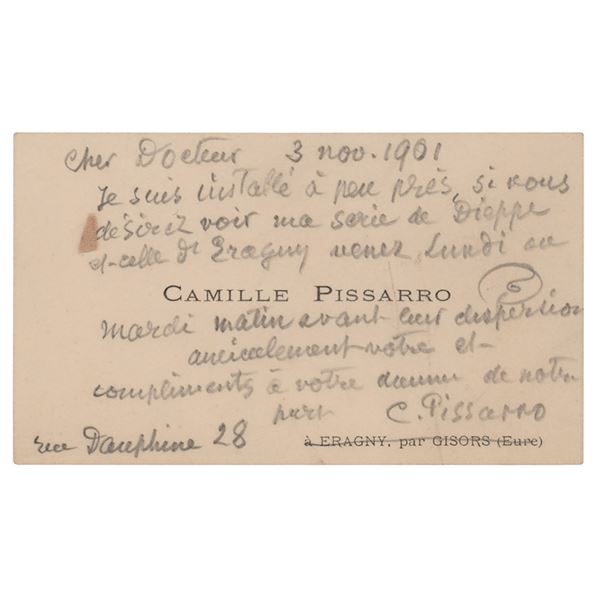 cher Docteur 3 nov. 1901
Je suis installé à peu près, si vous
désirez voir ma serie de Dieppe
et celle d'Eragny venez Lundi ou
CAMILLE PISSARRO
mardi matin avant leur dispersion
amicalement votre et
compliments à votre dame de notre
part C. Pissarro
rue Dauphine 28 à ERAGNY, par GISORS (Eure)